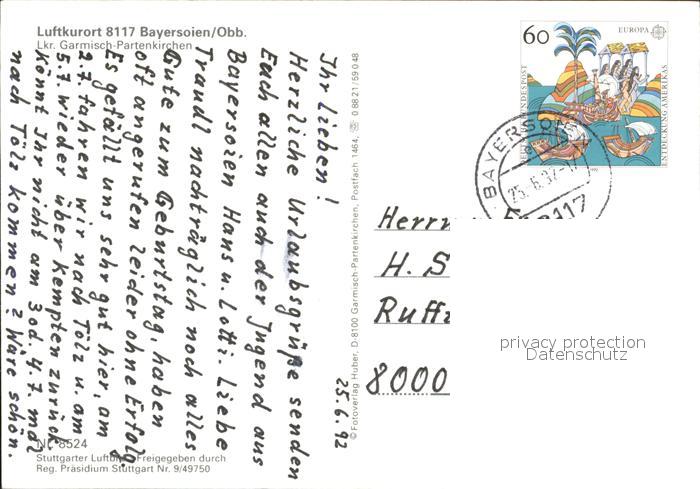 Luftkurort 8117 Bayersoien/Obb.
Lkr. Garmisch-Partenkirchen
Ihr lieben!
Herzliche Urlaubsgrüße senden
Euch allen auch der Jugend aus
Bayersoien Hans u. Lotti. Liebe
Traudl nachträglich noch alles
Gute zum Geburtstag, haben
oft angerufen leider ohne Erfolg.
Es gefällt uns sehr gut hier, am
2.7. fahren wir nach Tölz u. am
5.7. wieder über Kempten zurück
Könnt Ihr nicht am 3 od. 4.7. mal
nach Tölz kommen? Wäre schön.
25.6.92
Nr. 8524
Stuttgarter Luftbild Freigegeben durch
Reg. Präsidium Stuttgart Nr. 9/49750
© Fotoverlag Huber, D-8100 Garmisch-Partenkirchen, Postfach 1464, ☏ 0 88 21/5 90 48
60
EUROPA
DEUTSCHE BUNDESPOST
ENTDECKUNG AMERIKAS
1992
BAYERSOIEN
25.-6.92-17
8117
Herrn
H. S
Ruff
8000
privacy protection
Datenschutz